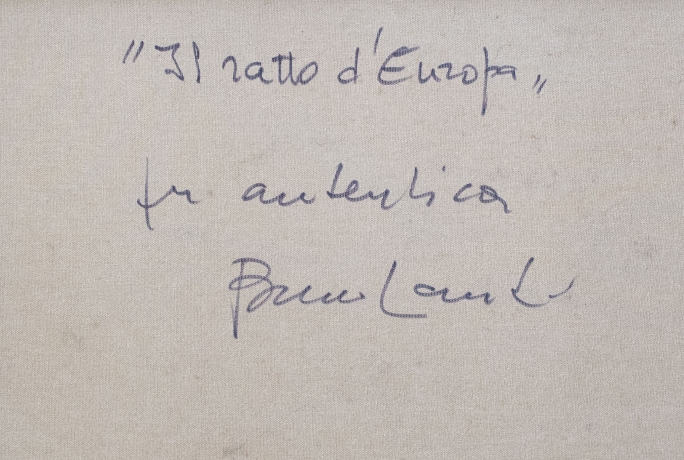 "Il ratto d'Europa"
per autentica
Bruno Landi